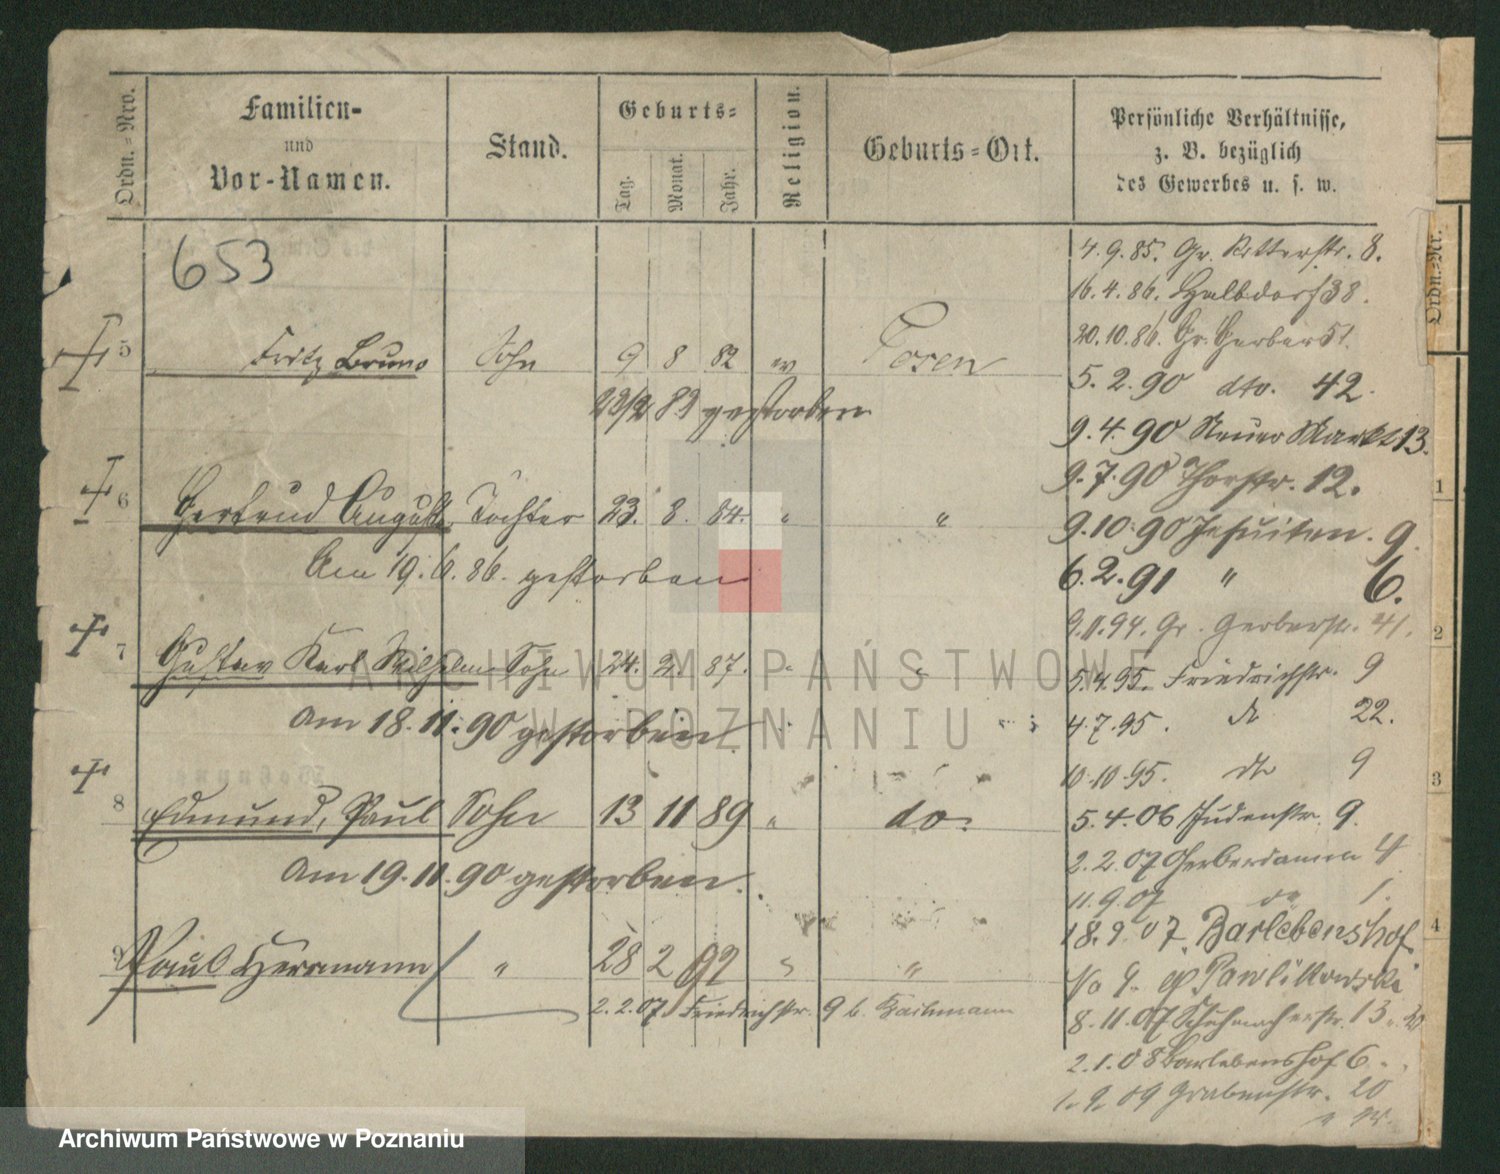 Ordn.=Nro.
Familien-
und
Vor-Namen.
Stand.
Geburts=
Tag.
Monat.
Jahr.
Religion.
Geburts=Ort.
Persönliche Verhältnisse,
z. B. bezüglich
des Gewerbes u. s. w.
Ordn.=Nr.
653
4.9.85. Gr. Ritterstr. 8.
16.4.86. Halbdorf 38.
20.10.86. Gr. Gerber 51.
5 Fritz Bruno Sohn 9 8 82 ev Posen
5.2.90 dto. 42.
gestorben
9.4.90 Neuer Markt 13.
9.7.90 Thorstr. 12.
6 Gertrud Auguste Tochter 23. 8. 84. " "
9.10.90 Jesuiten. 9.
Am 19.6.86. gestorben
6.2.91 " 6.
9.11.94. Gr. Gerberstr. 41.
7 Gustav Karl Wilhelm Sohn 24. 2. 87. " "
5.4.95. Friedrichstr. 9
Am 18.11.90 gestorben
4.7.95. do 22.
10.10.95. do 9
8 Edmund, Paul Sohn 13 11 89 " do.
5.4.06 Judenstr. 9.
2.2.07 Gerberdamm 4
Am 19.11.90 gestorben.
11.9.07 do 1.
18.9.07. Barlebenshof
9 Paul Herrmann " 28 2 92 " "
Pawlikowski
2.2.07 Friedrichstr. 9 b.
8.11.07 Schuhmacherstr. 13
2.1.08 Barlebenshof 6.
1.9.09 Grabenstr. 20
1
2
3
4
ARCHIWUM PAŃSTWOWE
W POZNANIU
Archiwum Państwowe w Poznaniu